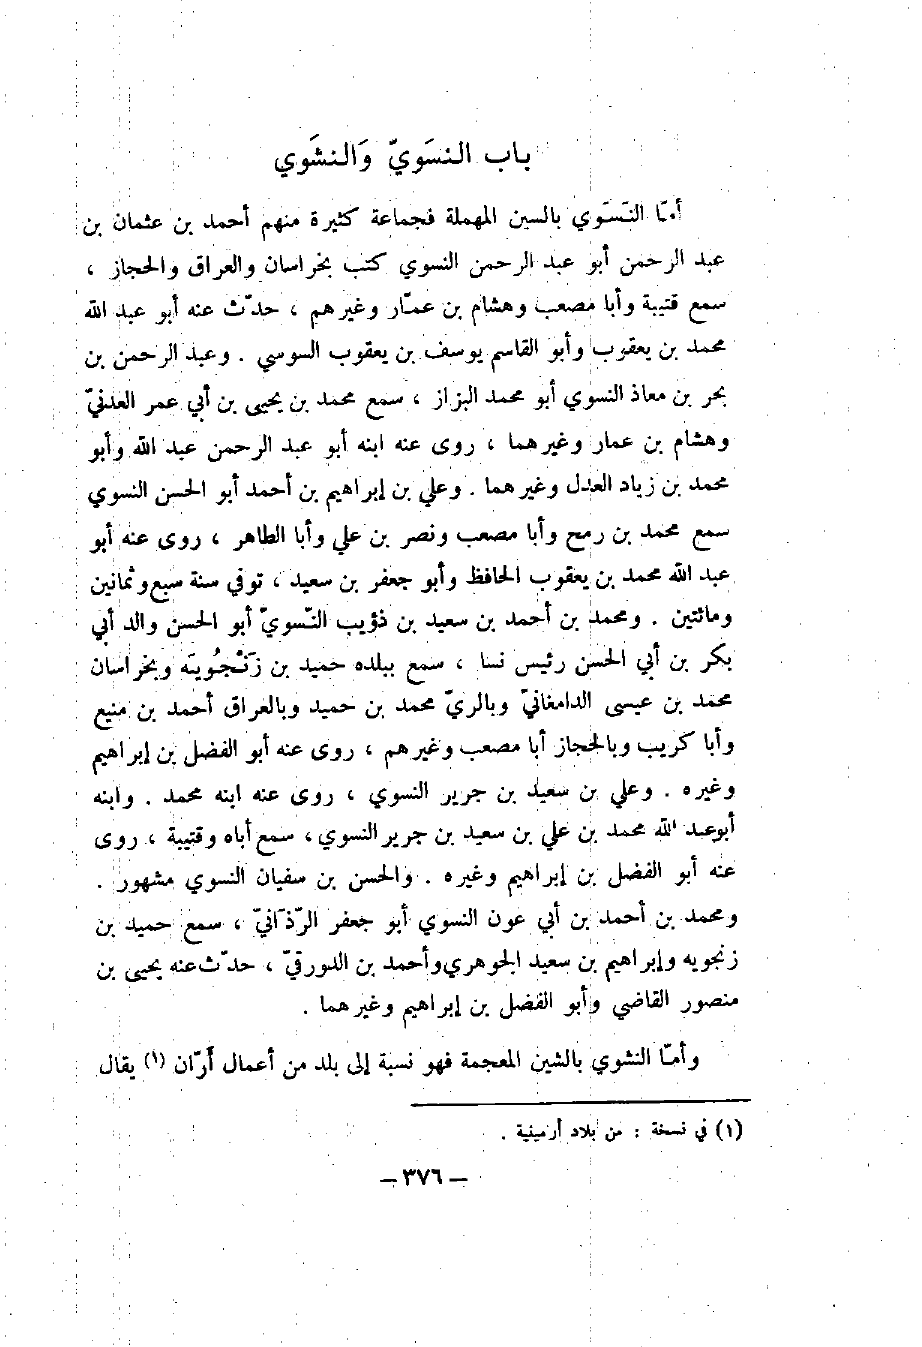 باب النسَويّ وَالنشَوي
أمّا النَسَوي بالسين المهملة فجماعة كثيرة منهم أحمد بن عثمان بن
عبد الرحمن أبو عبد الرحمن النسوي كتب بخراسان والعراق والحجاز ،
سمع قتيبة وأبا مصعب وهشام بن عمّار وغيرهم ، حدّث عنه أبو عبد الله
محمد بن يعقوب وأبو القاسم يوسف بن يعقوب السوسي . وعبد الرحمن بن
بحر بن معاذ النسوي أبو محمد البزاز ، سمع محمد بن يحيى بن أبي عمر العدنيّ
وهشام بن عمار وغيرهما ، روى عنه ابنه أبو عبد الرحمن عبد الله وأبو
محمد بن زياد العدل وغيرهما . وعلي بن إبراهيم بن أحمد أبو الحسن النسوي
سمع محمد بن رمح وأبا مصعب ونصر بن علي وأبا الطاهر ، روى عنه أبو
عبد الله محمد بن يعقوب الحافظ وأبو جعفر بن سعيد ، توفي سنة سبع وثمانين
ومائتين . ومحمد بن أحمد بن سعيد بن ذؤيب النّسويّ أبو الحسن والد أبي
بكر بن أبي الحسن رئيس نسا ، سمع ببلده حميد بن زَنْجُويَه وبخراسان
محمد بن عيسى الدامغانيّ وبالريّ محمد بن حميد وبالعراق أحمد بن منيع
وأبا كريب وبالحجاز أبا مصعب وغيرهم ، روى عنه أبو الفضل بن إبراهيم
وغيره . وعلي بن سعيد بن جرير النسوي ، روى عنه ابنه محمد . وابنه
أبو عبد الله محمد بن علي بن سعيد بن جرير النسوي ، سمع أباه وقتيبة ، روى
عنه أبو الفضل بن إبراهيم وغيره . والحسن بن سفيان النسوي مشهور .
ومحمد بن أحمد بن أبي عون النسوي أبو جعفر الرّذَانيّ ، سمع حميد بن
زنجويه وإبراهيم بن سعيد الجوهري وأحمد بن الدورقيّ ، حدّث عنه يحيى بن
منصور القاضي وأبو الفضل بن إبراهيم وغيرهما .
وأمّا النشوي بالشين المعجمة فهو نسبة إلى بلد من أعمال أَرّان (١) يقال
(١) في نسخة : من بلاد أرمينية .
– ٣٧٦ –